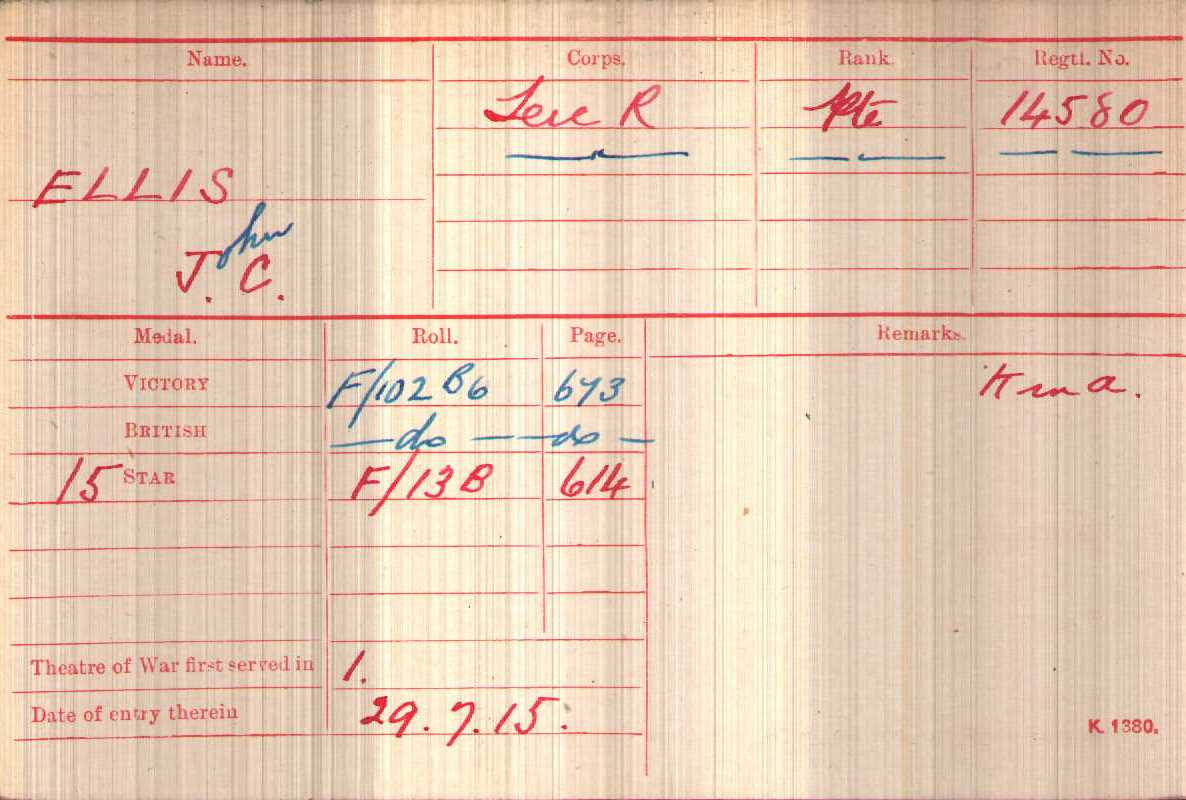 Name. Corps. Rank. Regtl. No.
Leic R Pte 14580
ELLIS
John
J. C.
Medal. Roll. Page. Remarks.
VICTORY F/102 B6 673 K in a.
BRITISH —do— —do—
15 STAR F/13 B 614
Theatre of War first served in 1.
Date of entry therein 29.7.15.
K. 1380.